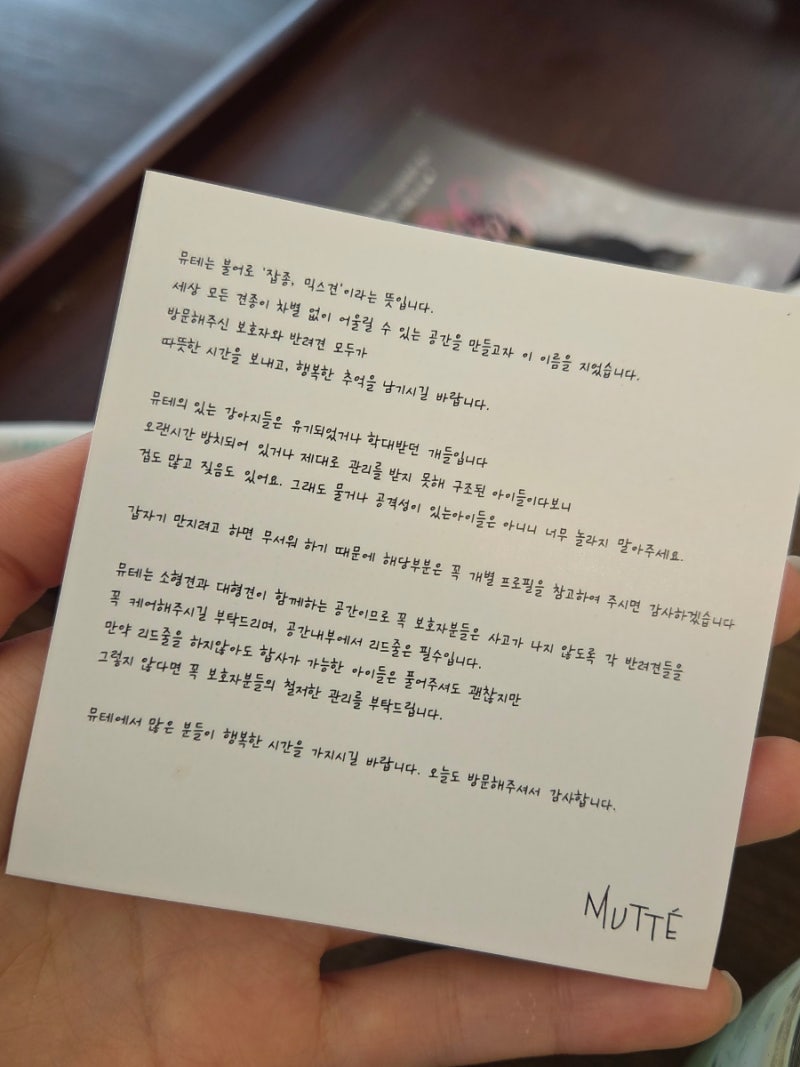 뮤테는 불어로 '잡종, 믹스견'이라는 뜻입니다.
세상 모든 견종이 차별 없이 어울릴 수 있는 공간을 만들고자 이 이름을 지었습니다.
방문해주신 보호자와 반려견 모두가
따뜻한 시간을 보내고, 행복한 추억을 남기시길 바랍니다.
뮤테의 있는 강아지들은 유기되었거나 학대받던 개들입니다
오랜시간 방치되어 있거나 제대로 관리를 받지 못해 구조된 아이들이다보니
겁도 많고 짖음도 있어요. 그래도 물거나 공격성이 있는아이들은 아니니 너무 놀라지 말아주세요.
갑자기 만지려고 하면 무서워 하기 때문에 해당부분은 꼭 개별 프로필을 참고하여 주시면 감사하겠습니다
뮤테는 소형견과 대형견이 함께하는 공간이므로 꼭 보호자분들은 사고가 나지 않도록 각 반려견들을
꼭 케어해주시길 부탁드리며, 공간내부에서 리드줄은 필수입니다.
만약 리드줄을 하지않아도 합사가 가능한 아이들은 풀어주셔도 괜찮지만
그렇지 않다면 꼭 보호자분들의 철저한 관리를 부탁드립니다.
뮤테에서 많은 분들이 행복한 시간을 가지시길 바랍니다. 오늘도 방문해주셔서 감사합니다.
MUTTÉ